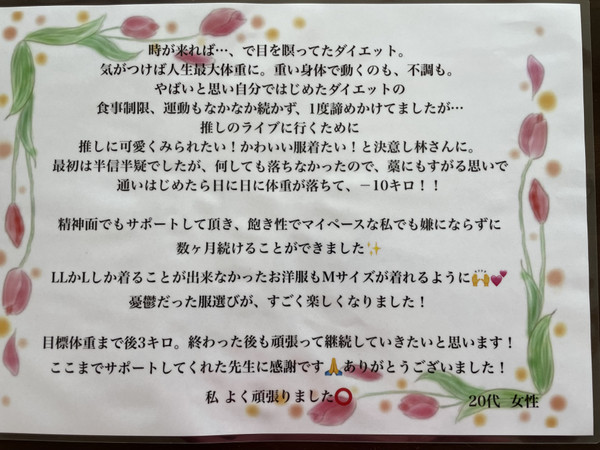 時が来れば…、で目を瞑ってたダイエット。
気がつけば人生最大体重に。重い身体で動くのも、不調も。
やばいと思い自分ではじめたダイエットの
食事制限、運動もなかなか続かず、1度諦めかけてましたが…
推しのライブに行くために
推しに可愛くみられたい！かわいい服着たい！と決意し林さんに。
最初は半信半疑でしたが、何しても落ちなかったので、藁にもすがる思いで
通いはじめたら日に日に体重が落ちて、−10キロ！！
精神面でもサポートして頂き、飽き性でマイペースな私でも嫌にならずに
数ヶ月続けることができました✨
LLかLしか着ることが出来なかったお洋服もMサイズが着れるように🙌💕
憂鬱だった服選びが、すごく楽しくなりました！
目標体重まで後3キロ。終わった後も頑張って継続していきたいと思います！
ここまでサポートしてくれた先生に感謝です🙏ありがとうございました！
私 よく頑張りました⭕
20代 女性